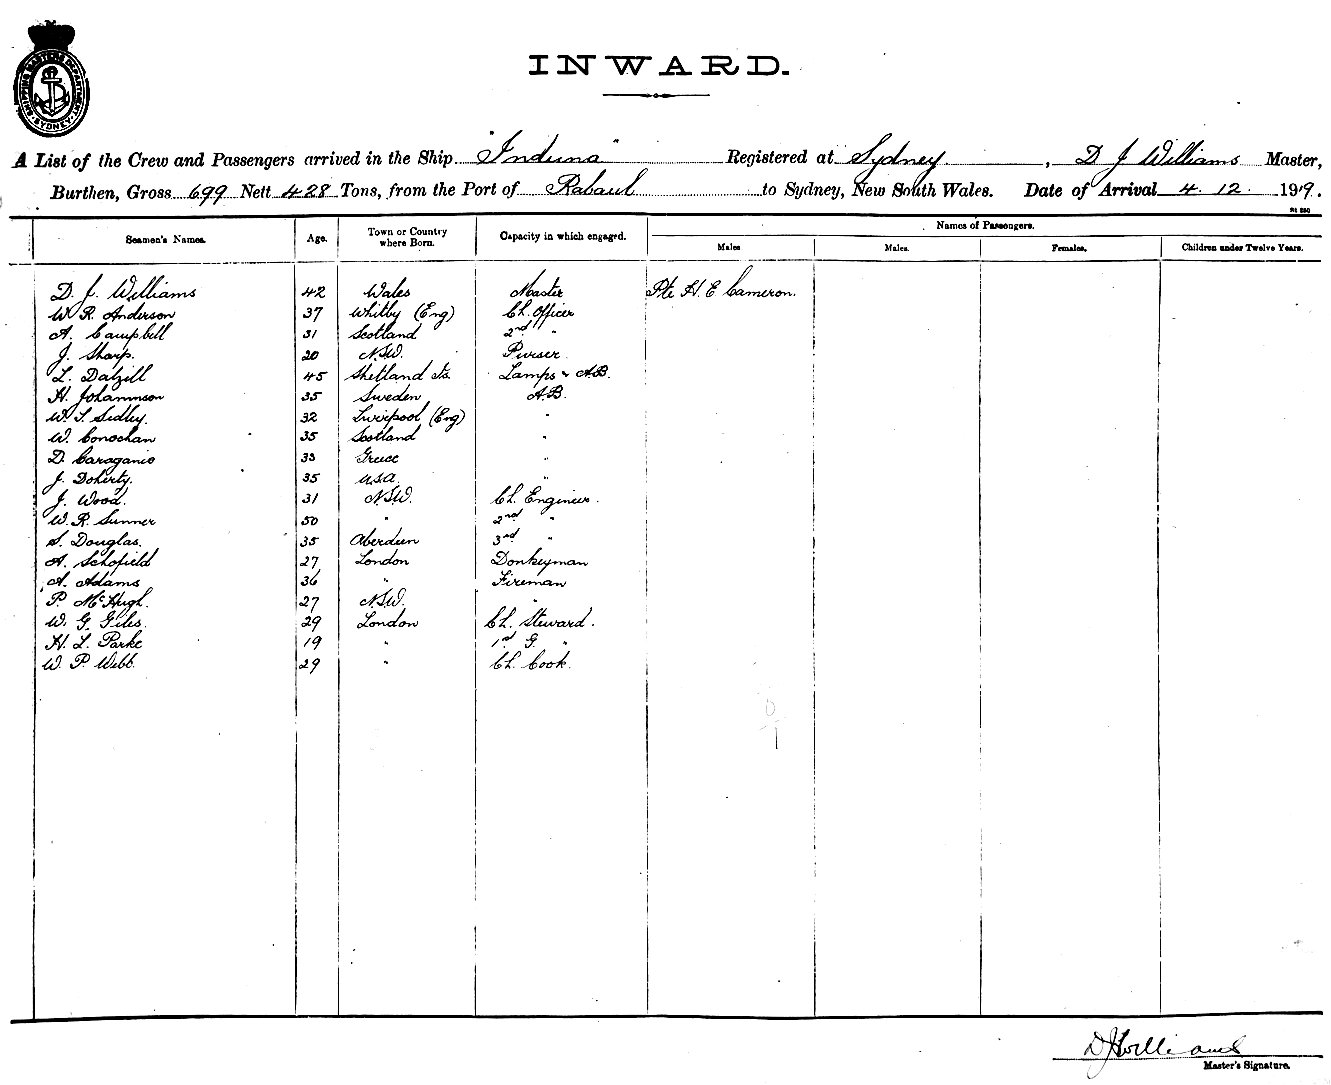 SHIPPING MASTERS DEPARTMENT
SYDNEY
INWARD.
A List of the Crew and Passengers arrived in the Ship "Induna" Registered at Sydney, D J Williams Master,
Burthen, Gross 699 Nett 428 Tons, from the Port of Rabaul to Sydney, New South Wales. Date of Arrival 4. 12. 1919.
Seamen's Names. Age. Town or Country where Born. Capacity in which engaged. Names of Passengers.
Males Males. Females. Children under Twelve Years.
D. J. Williams 42 Wales Master Pte H. E. Cameron.
W. R. Anderson 37 Whitby (Eng) Ch. Officer
A. Campbell 31 Scotland 2nd "
J. Sharp. 20 N.S.W. Purser
L. Dalzill 45 Shetland Is. Lamps & A.B.
H. Johannson 35 Sweden A.B.
W. S. Sidley. 32 Liverpool (Eng) "
W. Conochan 35 Scotland "
D. Caraganis 33 Greece "
J. Doherty. 35 U.S.A. "
J. Wood. 31 N.S.W. Ch. Engineer.
W. R. Sumner 50 " 2nd "
S. Douglas. 35 Aberdeen 3rd "
A. Schofield 27 London Donkeyman
A. Adams 36 " Fireman
P. McHugh. 27 N.S.W. "
W. G. Giles. 29 London Ch. Steward.
H. L. Parke 19 " 1rd G. "
W. P. Webb. 29 " Ch. Cook.
D J Williams
Master's Signature.